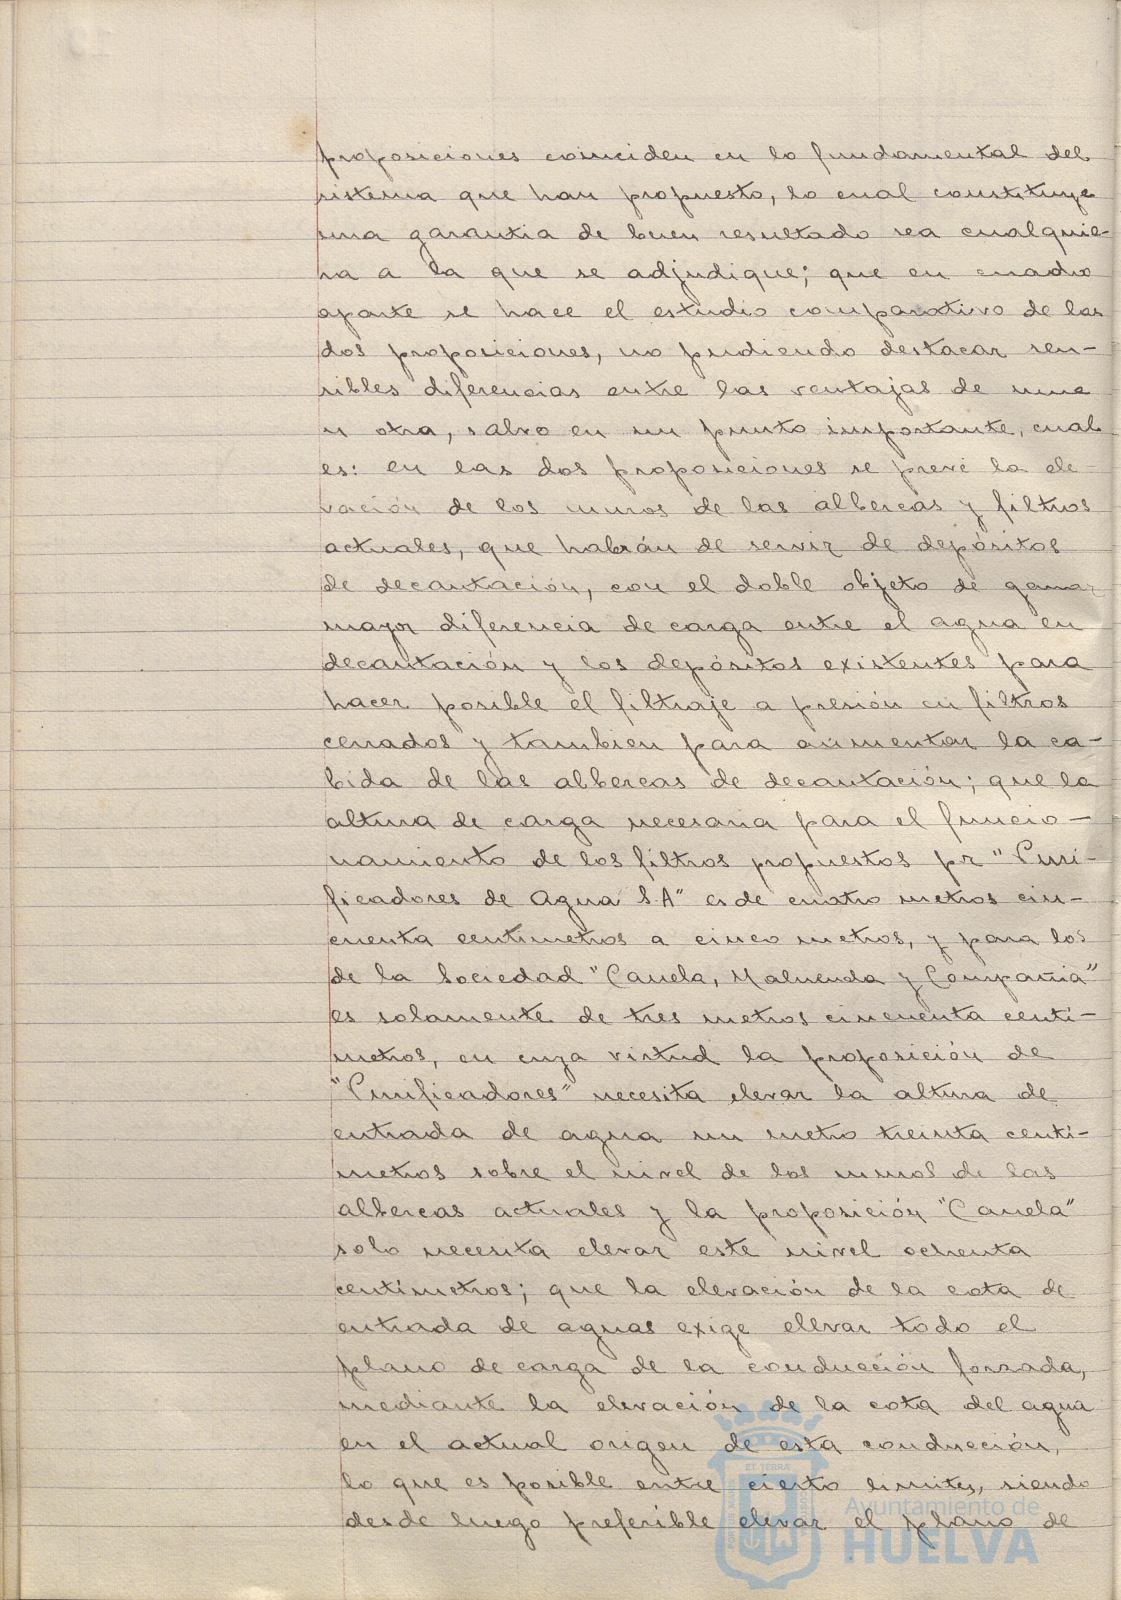 proposiciones coinciden en lo fundamental del
sistema que han propuesto, lo cual constituye
una garantia de buen resultado sea cualquie-
ra a la que se adjudique; que en cuadro
aparte se hace el estudio comparativo de las
dos proposiciones, no pudiendo destacar sen-
sibles diferencias entre las ventajas de una
u otra, salvo en un punto importante, cual
es: en las dos proposiciones se prevé la ele-
vación de los muros de las albercas y filtros
actuales, que habrán de servir de depósitos
de decantación, con el doble objeto de ganar
mayor diferencia de carga entre el agua en
decantación y los depósitos existentes para
hacer posible el filtraje a presión en filtros
cerrados y tambien para aumentar la ca-
bida de las albercas de decantación; que la
altura de carga necesaria para el funcio-
namiento de los filtros propuestos pr "Puri-
ficadores de Agua S.A" es de cuatro metros cin-
cuenta centimetros a cinco metros, y para los
de la Sociedad "Canela, Maluenda y Compañia"
es solamente de tres metros cincuenta centi-
metros, en cuya virtud la proposición de
"Purificadores" necesita elevar la altura de
entrada de agua un metro treinta centi-
metros sobre el nivel de los muros de las
albercas actuales y la proposición "Canela"
solo necesita elevar este nivel ochenta
centímetros; que la elevación de la cota de
entrada de aguas exige elevar todo el
plano de carga de la conducción forzada,
mediante la elevación de la cota del agua
en el actual origen de esta conducción,
lo que es posible entre cierto limites, siendo
desde luego preferible elevar el plano de
ET TERRA
Ayuntamiento de
HUELVA